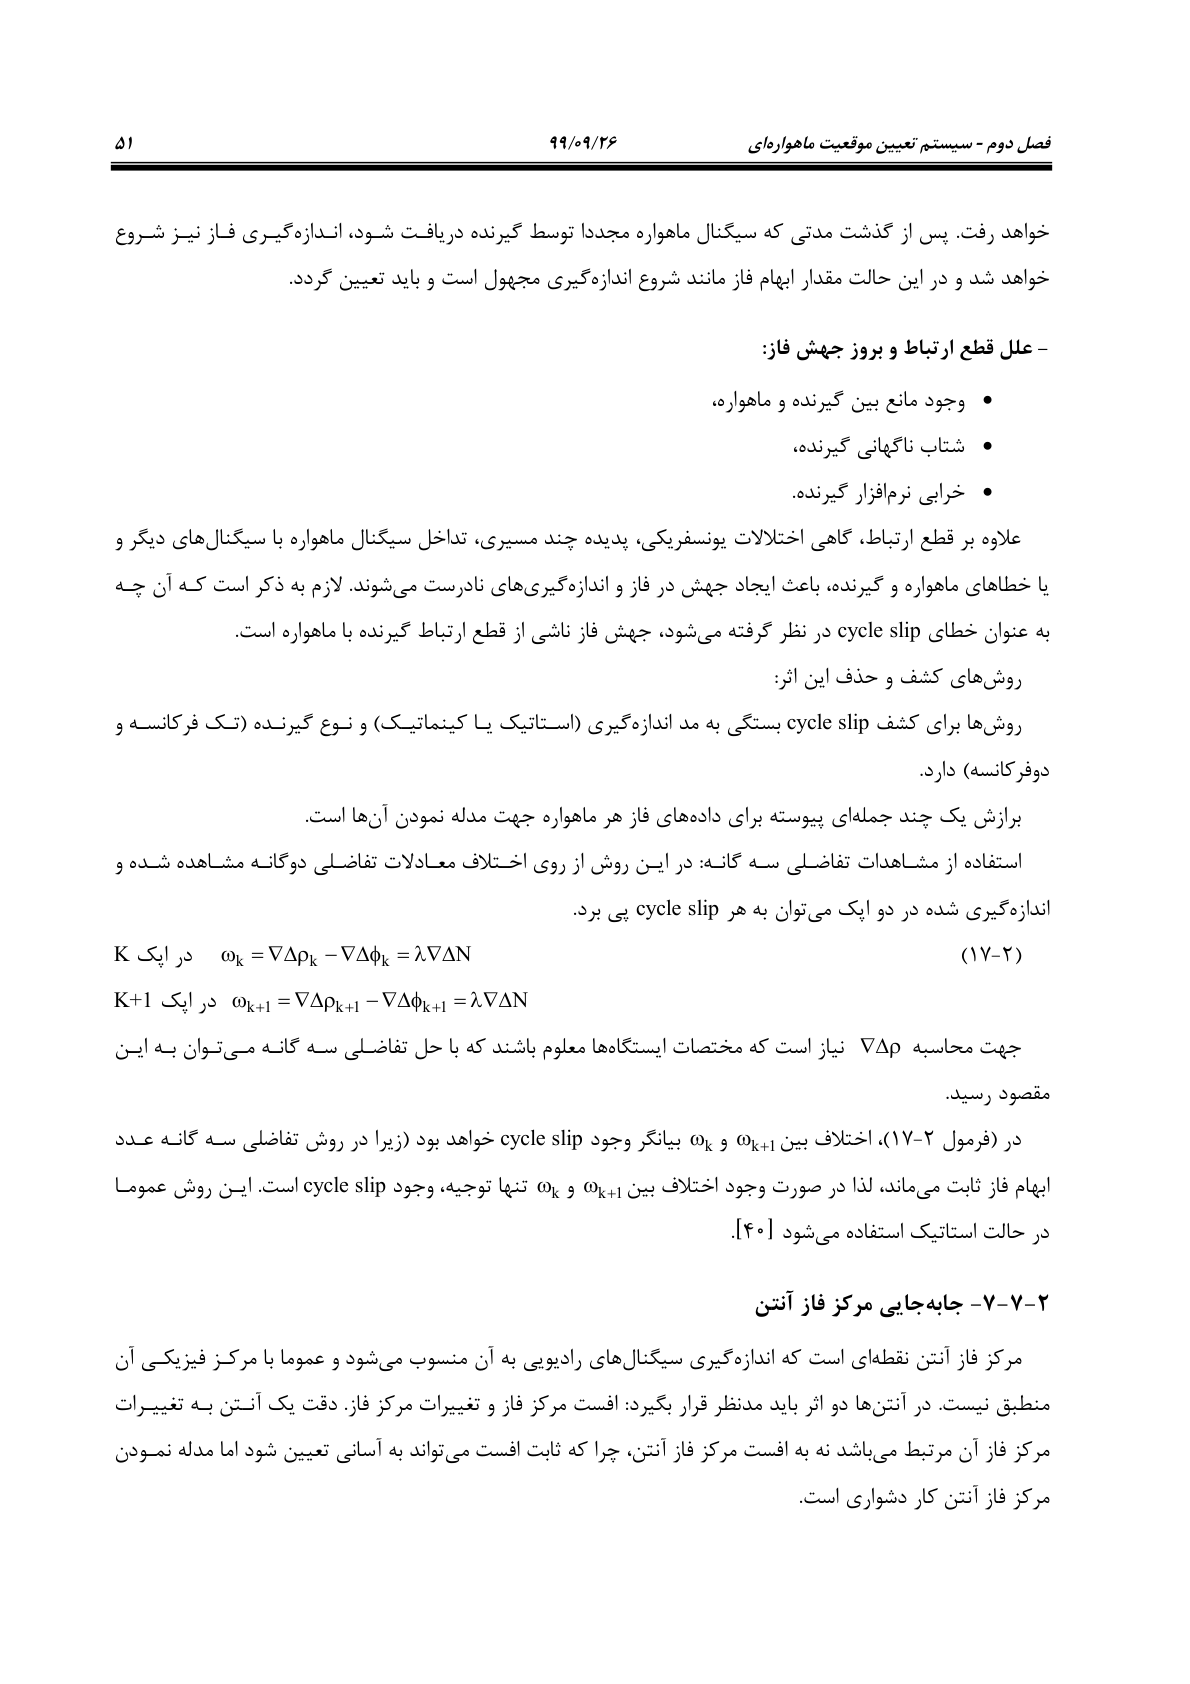 فصل دوم - سیستم تعیین موقعیت ماهواره‌ای ۹۹/۰۹/۲۶ ۵۱
خواهد رفت. پس از گذشت مدتی که سیگنال ماهواره مجددا توسط گیرنده دریافت شود، اندازه‌گیری فاز نیز شروع
خواهد شد و در این حالت مقدار ابهام فاز مانند شروع اندازه‌گیری مجهول است و باید تعیین گردد.
– علل قطع ارتباط و بروز جهش فاز:
• وجود مانع بین گیرنده و ماهواره،
• شتاب ناگهانی گیرنده،
• خرابی نرم‌افزار گیرنده.
علاوه بر قطع ارتباط، گاهی اختلالات یونسفریکی، پدیده چند مسیری، تداخل سیگنال ماهواره با سیگنال‌های دیگر و
یا خطاهای ماهواره و گیرنده، باعث ایجاد جهش در فاز و اندازه‌گیری‌های نادرست می‌شوند. لازم به ذکر است که آن چه
به عنوان خطای cycle slip در نظر گرفته می‌شود، جهش فاز ناشی از قطع ارتباط گیرنده با ماهواره است.
روش‌های کشف و حذف این اثر:
روش‌ها برای کشف cycle slip بستگی به مد اندازه‌گیری (استاتیک یا کینماتیک) و نوع گیرنده (تک فرکانسه و
دوفرکانسه) دارد.
برازش یک چند جمله‌ای پیوسته برای داده‌های فاز هر ماهواره جهت مدله نمودن آن‌ها است.
استفاده از مشاهدات تفاضلی سه گانه: در این روش از روی اختلاف معادلات تفاضلی دوگانه مشاهده شده و
اندازه‌گیری شده در دو اپک می‌توان به هر cycle slip پی برد.
(۲-۱۷) ω_k = ∇Δρ_k − ∇Δϕ_k = λ∇ΔN در اپک K
ω_{k+1} = ∇Δρ_{k+1} − ∇Δϕ_{k+1} = λ∇ΔN در اپک K+1
جهت محاسبه ∇Δρ نیاز است که مختصات ایستگاه‌ها معلوم باشند که با حل تفاضلی سه گانه می‌توان به این
مقصود رسید.
در (فرمول ۲-۱۷)، اختلاف بین ω_{k+1} و ω_k بیانگر وجود cycle slip خواهد بود (زیرا در روش تفاضلی سه گانه عدد
ابهام فاز ثابت می‌ماند، لذا در صورت وجود اختلاف بین ω_{k+1} و ω_k تنها توجیه، وجود cycle slip است. این روش عموما
در حالت استاتیک استفاده می‌شود [۴۰].
۲-۷-۷- جابه‌جایی مرکز فاز آنتن
مرکز فاز آنتن نقطه‌ای است که اندازه‌گیری سیگنال‌های رادیویی به آن منسوب می‌شود و عموما با مرکز فیزیکی آن
منطبق نیست. در آنتن‌ها دو اثر باید مدنظر قرار بگیرد: افست مرکز فاز و تغییرات مرکز فاز. دقت یک آنتن به تغییرات
مرکز فاز آن مرتبط می‌باشد نه به افست مرکز فاز آنتن، چرا که ثابت افست می‌تواند به آسانی تعیین شود اما مدله نمودن
مرکز فاز آنتن کار دشواری است.